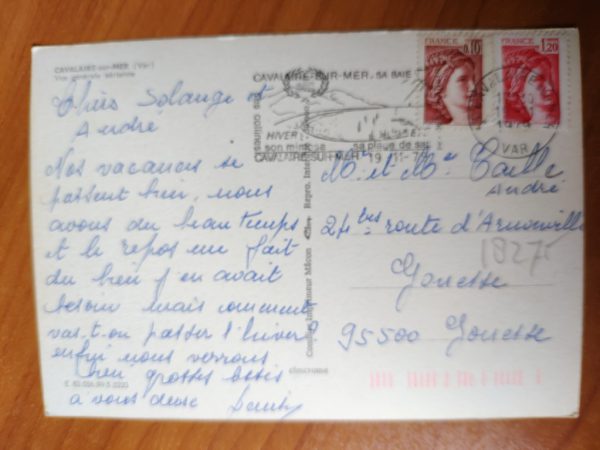 CAVALAIRE-sur-MER (Var)
Vue générale aérienne
Chers Solange et
André
Nos vacances se
passent bien, nous
avons du beau temps
et le repos me fait
du bien j'en avait
besoin mais comment
vas-t-on passer l'hiver?
enfin nous verrons
bien grosses bises
à vous deux
CAVALAIRE-SUR-MER SA BAIE
ses collines
HIVER
son mimosa
sa plage de sable
CAVALAIRE-SUR-MER
0,10
1,20
VAR
Mr et Me Caille
André
24 bis route d'Arnouville
Gonesse
95500 Gonesse
1827
Combier Imprimeur Mâcon